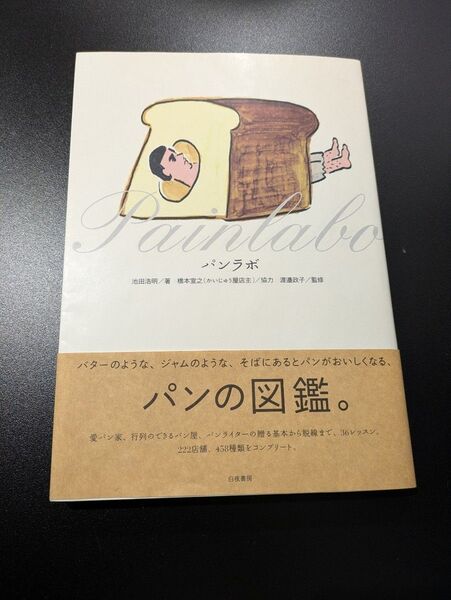 Painlabo
パンラボ
池田浩明/著 橋本宣之(かいじゅう屋店主)/協力 渡邉政子/監修
バターのような、ジャムのような、そばにあるとパンがおいしくなる、
パンの図鑑。
愛パン家、行列のできるパン屋、パンライターの贈る基本から脱線まで、36レッスン。
222店舗、458種類をコンプリート。
白夜書房